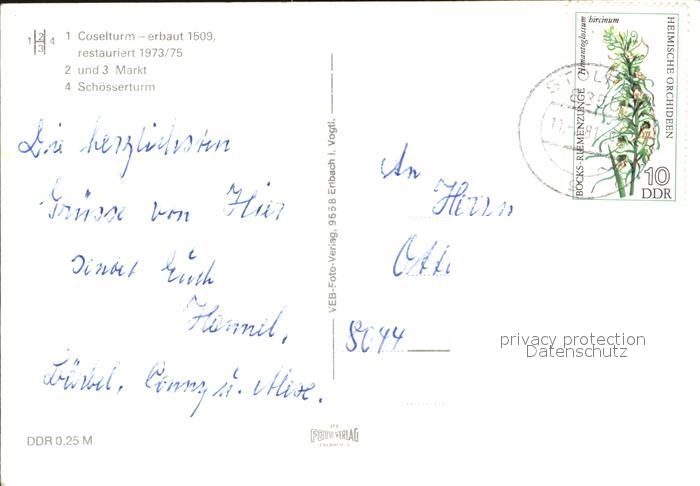 1 2 3 4
1 Coselturm – erbaut 1509,
restauriert 1973/75
2 und 3 Markt
4 Schösserturm
Die herzlichsten
Grüsse von Hier
sendet Euch
Hammel,
Bärbel, Conny u. Alex.
DDR 0,25 M
VEB-Foto-Verlag, 9658 Erlbach i. Vogtl.
FOTO VERLAG
An
Herrn
Otti
8044
privacy protection
Datenschutz
STOLP
8350
BOCKS-RIEMENZUNGE Himantoglossum hircinum
HEIMISCHE ORCHIDEEN
10
DDR